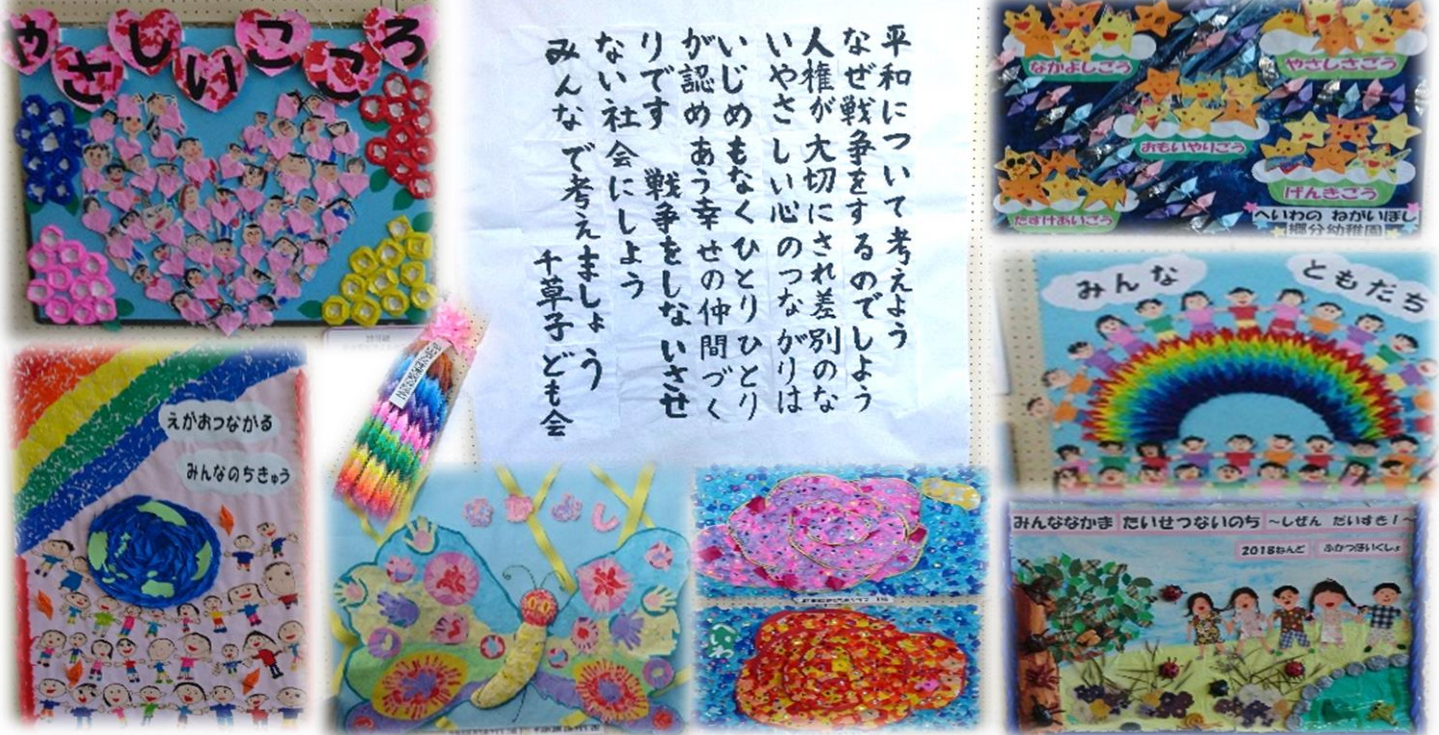 やさしいこころ
平和について考えよう
なぜ戦争をするのでしよう
人権が大切にされ差別のな
いやさしい心のつながりは
いじめもなくひとりひとり
が認めあう幸せの仲間づく
りです 戦争をしないさせ
ない社会にしよう
みんなで考えましょう
千草子ども会
なかよしごう
やさしさごう
おもいやりごう
げんきごう
たすけあいごう
へいわの ねがいぼし
郷分幼稚園
みんな
ともだち
えがおつながる
みんなのちきゅう
へいわ
みんななかま たいせつないのち ～しぜん だいすき！～
2018ねんど ふかつほいくしょ